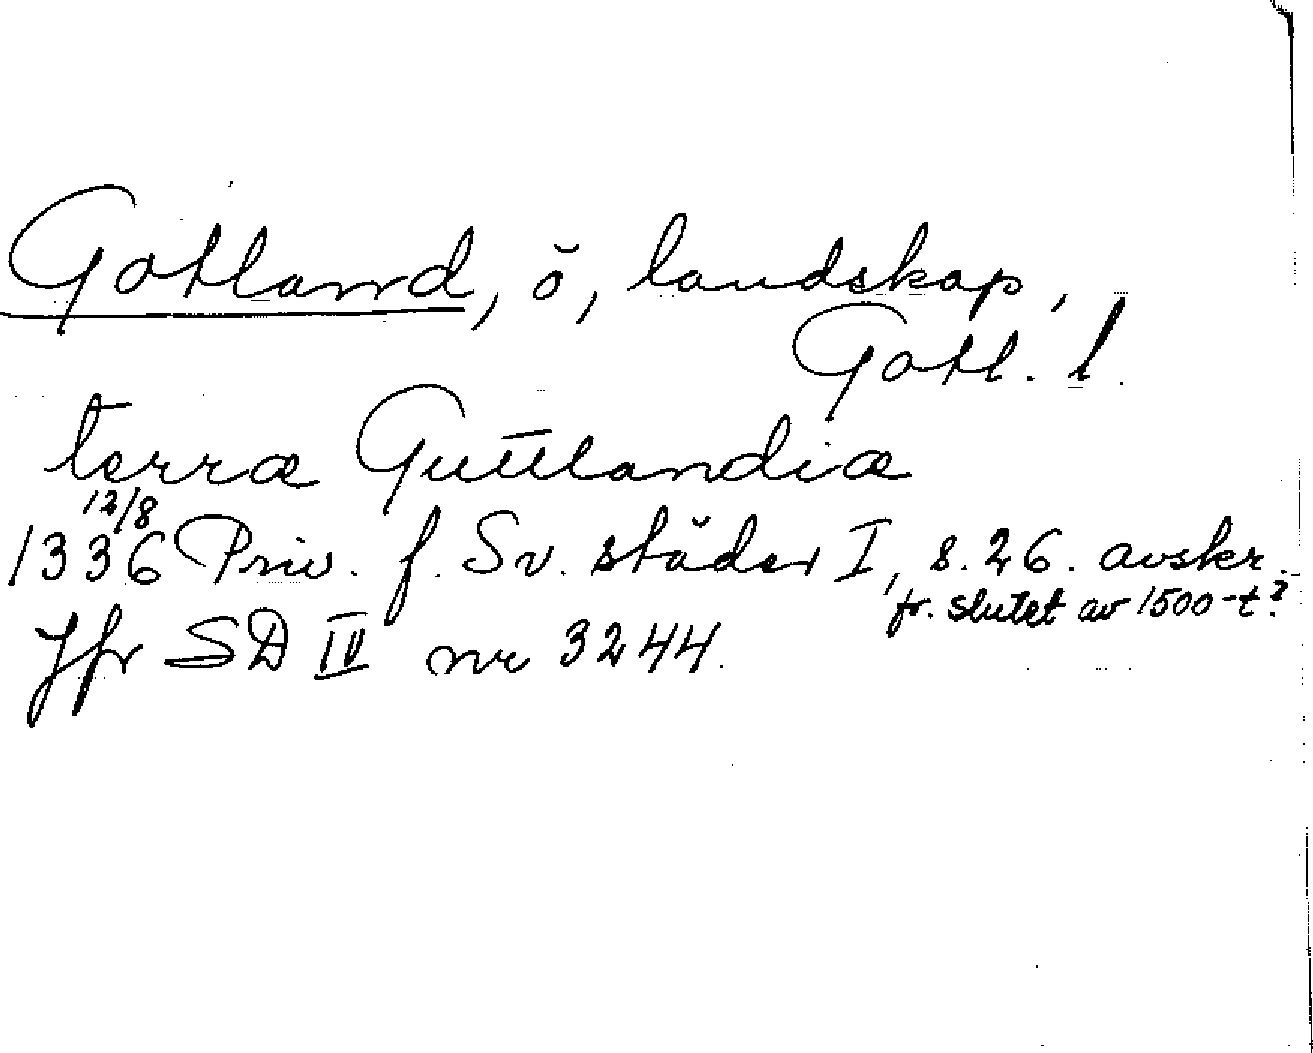 Gotland, ö, landskap,
Gotl. l.
terræ Guttlandiæ
12/8
1336 Priv. f. Sv. städer I, s. 26. avskr.
fr. slutet av 1500-t?
Jfr SD IV nr 3244.